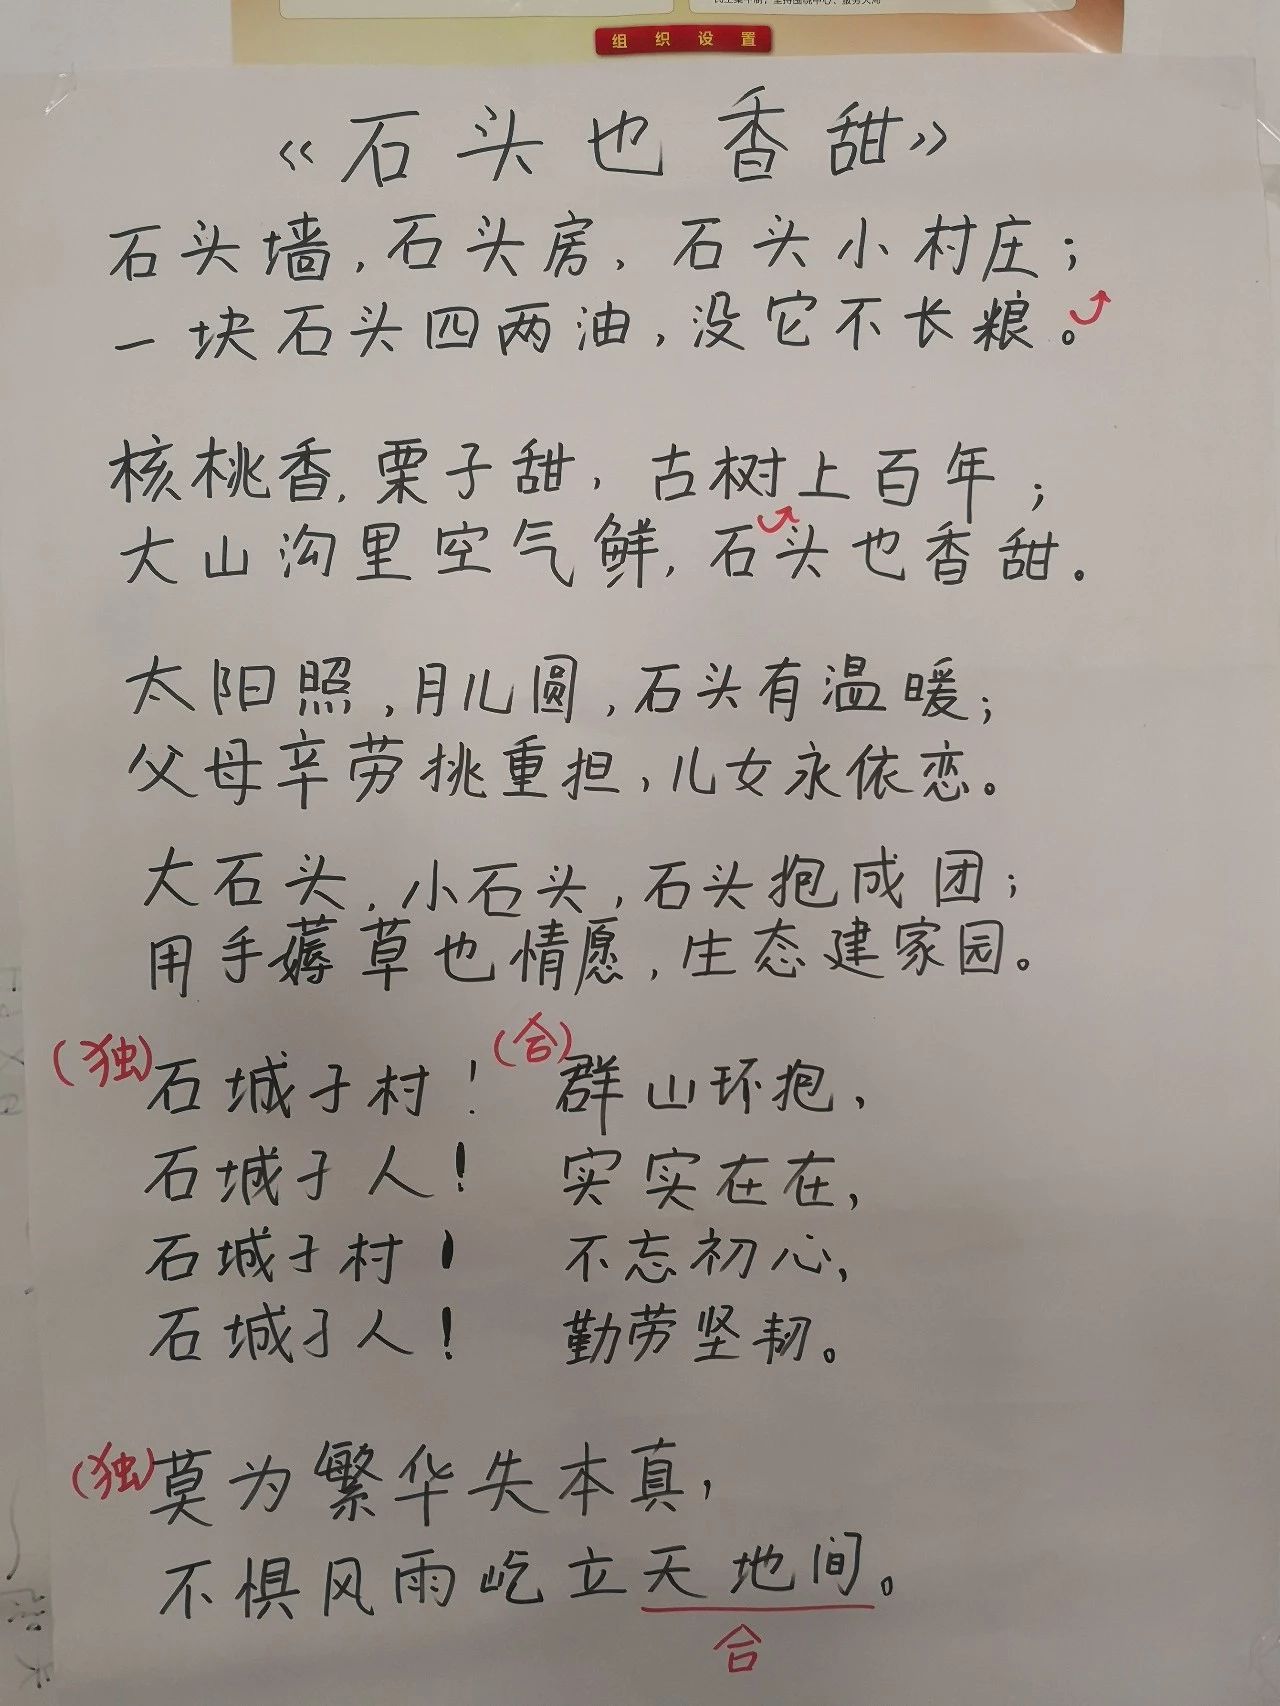 组织设置
《石头也香甜》
石头墙,石头房,石头小村庄;
一块石头四两油,没它不长粮。
核桃香,栗子甜,古树上百年;
大山沟里空气鲜,石头也香甜.
太阳照,月儿圆,石头有温暖;
父母辛劳挑重担,儿女永依恋。
大石头,小石头,石头抱成团;
用手薅草也情愿,生态建家园。
(独)石城子村! (合)群山环抱,
石城子人! 实实在在,
石城子村! 不忘初心,
石城子人! 勤劳坚韧。
(独)莫为繁华失本真,
不惧风雨屹立天地间。
合